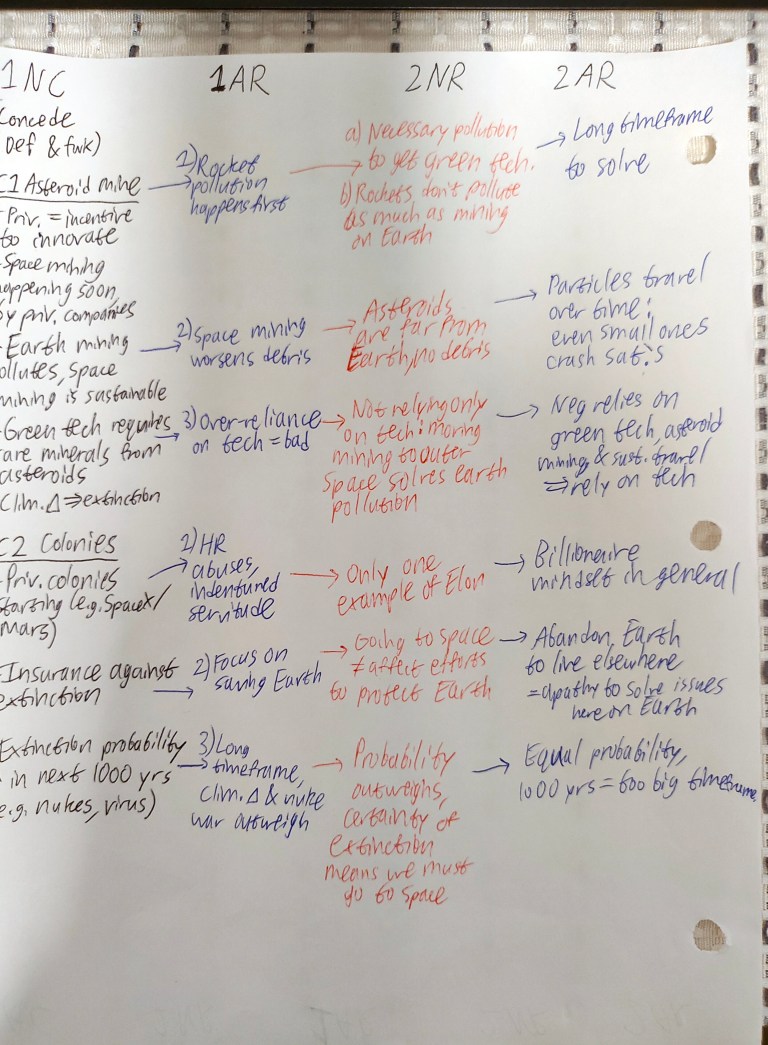 1NC
1AR
2NR
2AR
Concede
Def & fwk)
C1 Asteroid mine
- Priv. = incentive
to innovate
- Space mining
appening soon,
by priv. companies
- Earth mining
ollutes, space
mining is sustainable
- Green tech requires
are minerals from
asteroids
Clim. Δ ⇒ extinction
C2 Colonies
- Priv. colonies
starting (e.g. SpaceX/
Mars)
- Insurance against
extinction
Extinction probability
in next 1000 yrs
e.g. nukes, virus)
→ 1) Rocket
pollution
happens first
→ 2) Space mining
worsens debris
→ 3) Over-reliance
on tech = bad
→ 1) HR
abuses,
indentured
servitude
→ 2) Focus on
saving Earth
→ 3) Long
timeframe,
clim. Δ & nuke
war outweigh
→ a) Necessary pollution
to get green tech.
b) Rockets don't pollute
as much as mining
on Earth
→ Asteroids
are far from
Earth, no debris
→ Not relying only
on tech: moving
mining to outer
space solves earth
pollution
→ Only one
example of Elon
→ Going to space
≠ affect efforts
to protect Earth
→ Probability
outweighs,
certainty of
extinction
means we must
go to space
→ Long timeframe
to solve
→ Particles travel
over time:
even small ones
crash sat.'s
→ Neg relies on
green tech, asteroid
mining, & sust. travel
⇒ rely on tech
→ Billionaire
mindset in general
→ Abandon Earth
to live elsewhere
= apathy to solve issues
here on Earth
→ Equal probability,
1000 yrs = too big timeframe